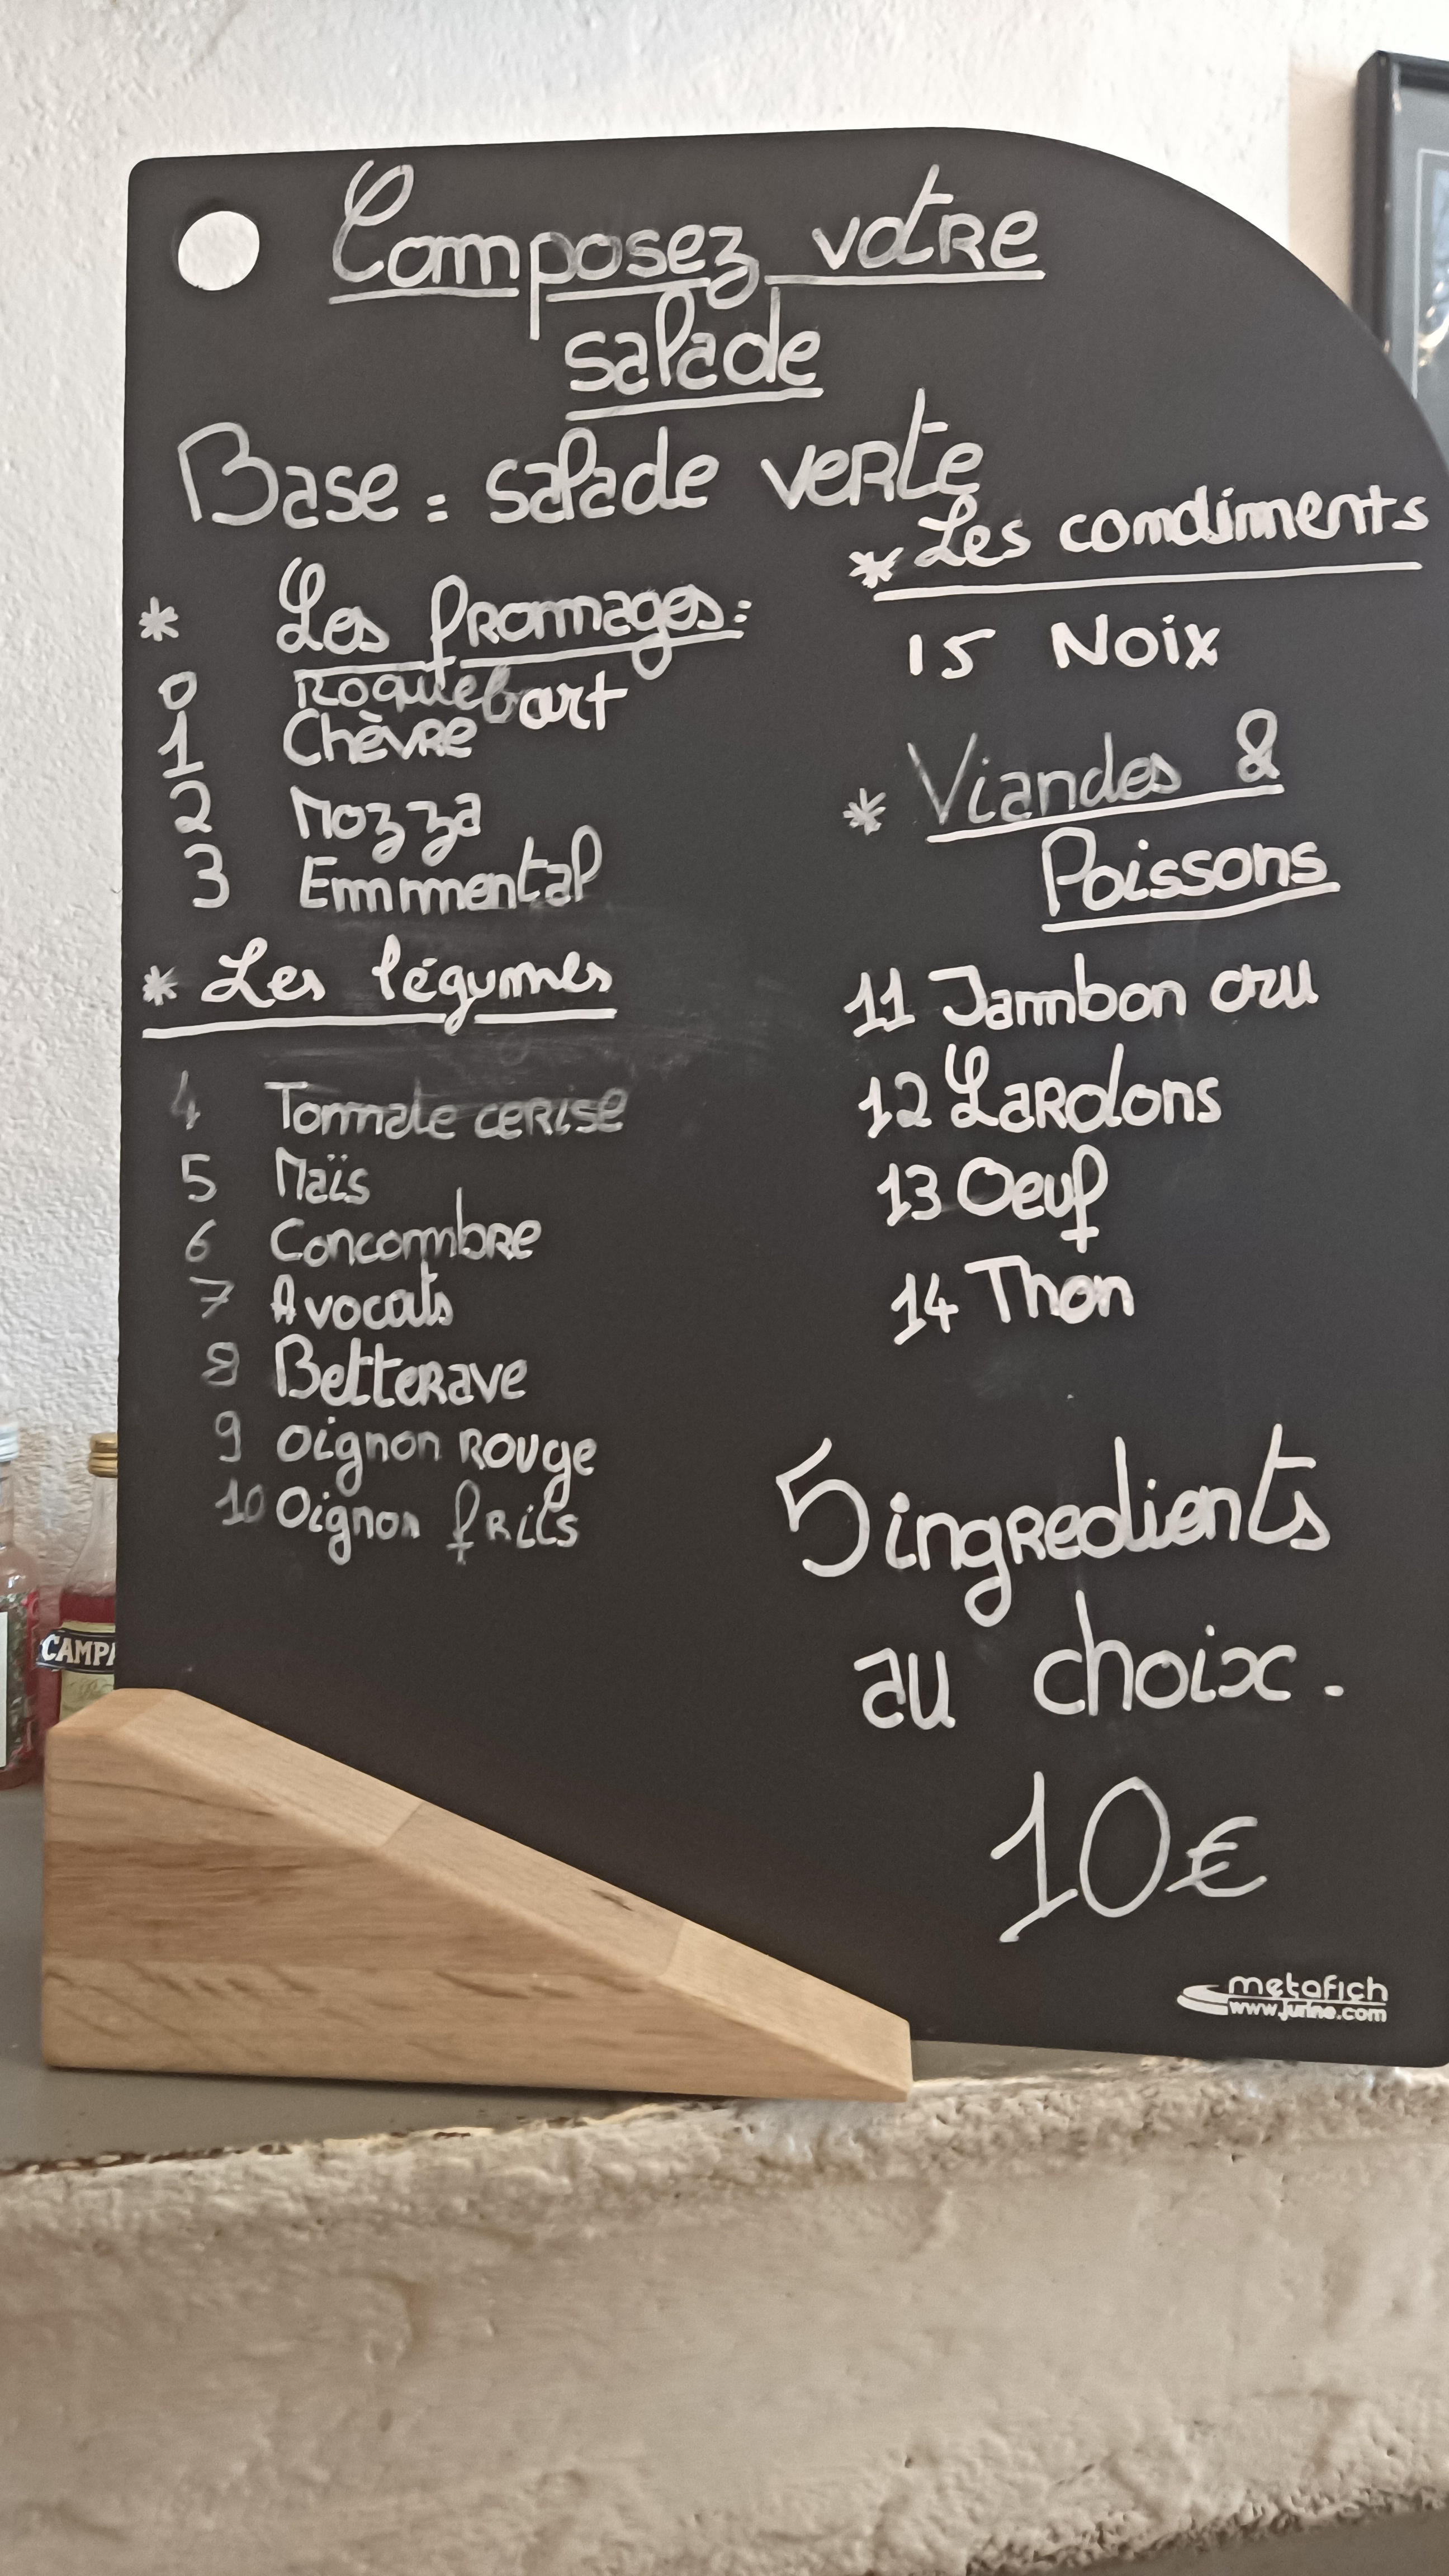 Composez votre
salade
Base = salade verte
* Les fromages:
0 Roquebart
1 Chèvre
2 Mozza
3 Emmental
* Les légumes
4 Tomate cerise
5 Maïs
6 Concombre
7 Avocats
8 Betterave
9 Oignon Rouge
10 Oignon frits
* Les condiments
15 Noix
* Viandes &
Poissons
11 Jambon cru
12 Lardons
13 Oeuf
14 Thon
5 ingredients
au choix.
10€
metafich
www.jurine.com
CAMPA